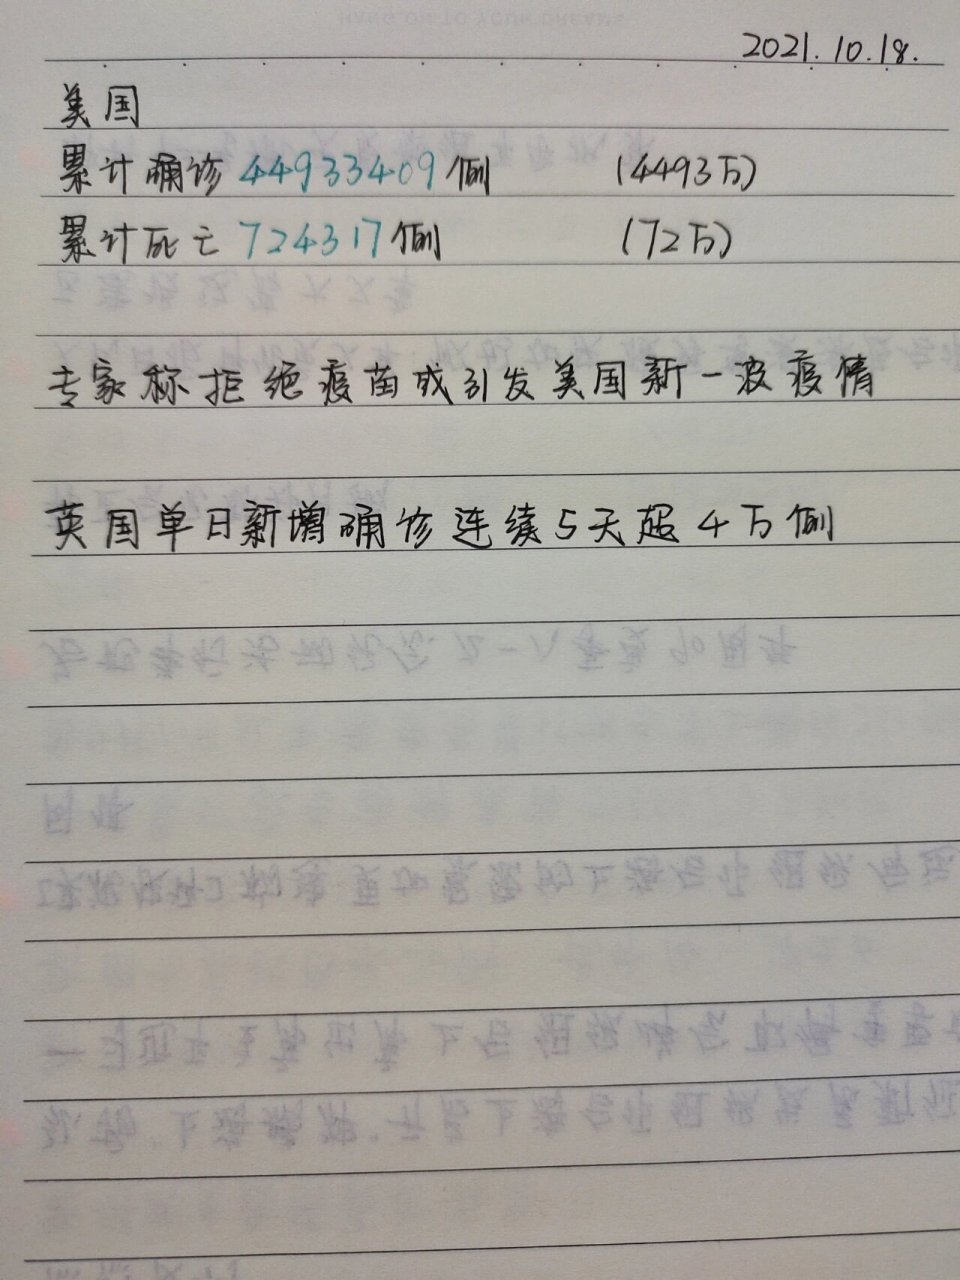 2021.10.18.
美国
累计确诊44933409例 (4493万)
累计死亡724317例 (72万)
专家称拒绝疫苗或引发美国新一波疫情
英国单日新增确诊连续5天超4万例